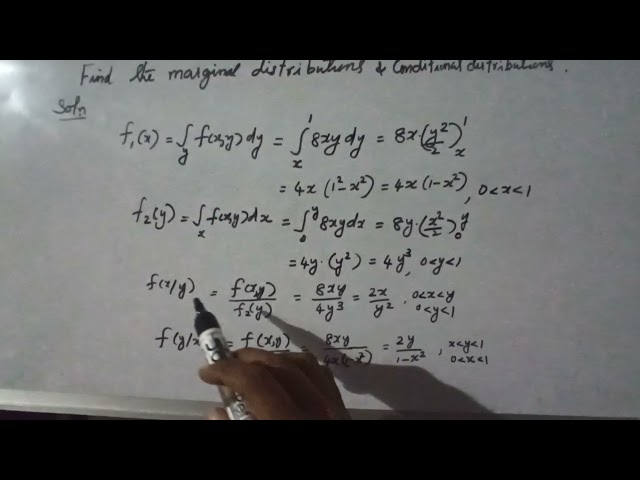 Find the marginal distributions & Conditional distributions.
Soln
f₁(x) = ∫_y f(x,y) dy = ∫_x^1 8xy dy = 8x (y²/2)_x^1
= 4x (1²-x²) = 4x(1-x²), 0<x<1
f₂(y) = ∫_x f(x,y) dx = ∫_0^y 8xy dx = 8y·(x²/2)_0^y
= 4y·(y²) = 4y³, 0<y<1
f(x/y) = f(x,y)/f₂(y) = 8xy/4y³ = 2x/y², 0<x<y 0<y<1
f(y/x = f(x,y) = 8xy/4x(1-x²) = 2y/1-x², x<y<1 0<x<1